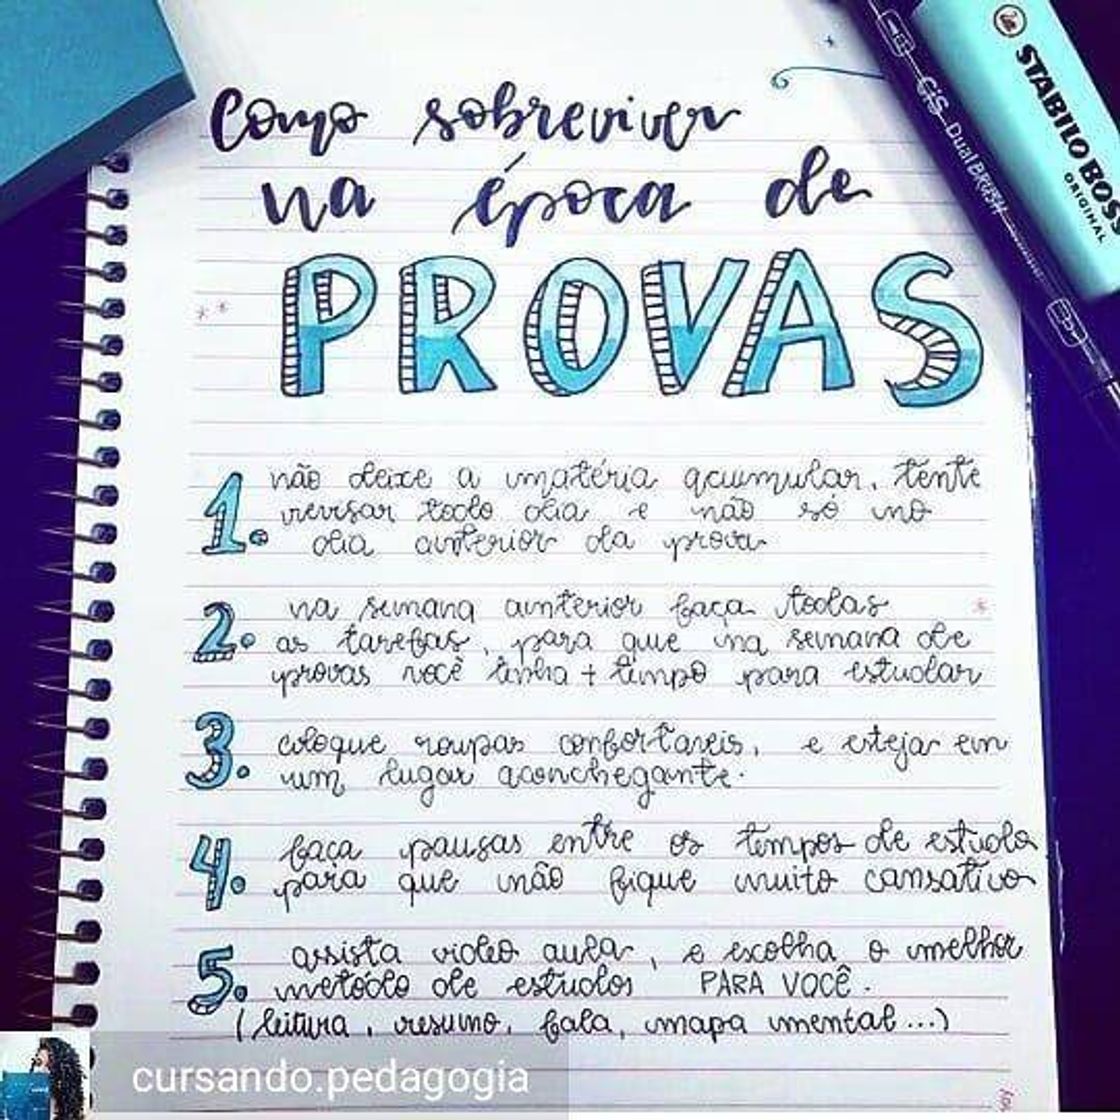 Como sobreviver
na época de
PROVAS
1. não deixe a matéria acumular, tente
revisar todo dia e não só no
dia anterior da prova
2. na semana anterior faça todas
as tarefas, para que na semana de
provas você tenha + tempo para estudar
3. coloque roupas confortaveis, e esteja em
um lugar aconchegante.
4. faça pausas entre os tempos de estudo
para que não fique muito cansativo
5. assista video aula, e escolha o melhor
metódo de estudos PARA VOCÊ.
(leitura, resumo, fala, mapa mental...)
STABILO BOSS
ORIGINAL
CiS Dual BRUSH
cursando.pedagogia